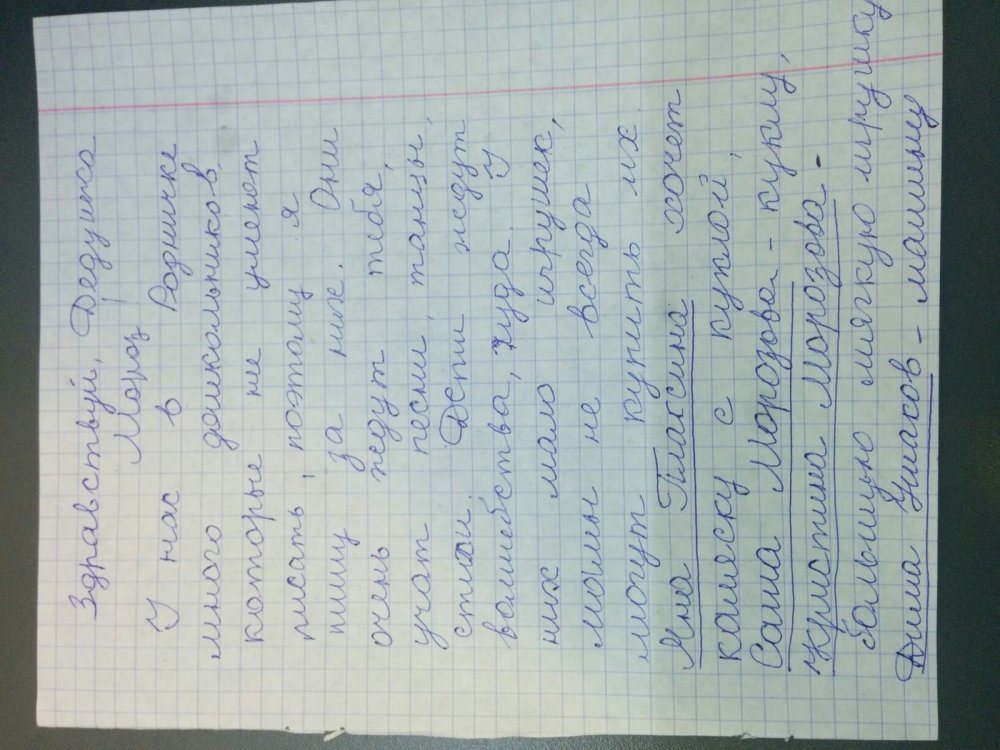 Здравствуй, Дедушка
Мороз
У нас в Родничке
много дошкольников
которые не умеют
писать, поэтому я
пишу за них. Они
очень ждут тебя,
учат песни, танцы,
стихи. Дети ждут
волшебства, чуда. У
них мало игрушек,
мамы не всегда
могут купить их
Яна Плаксина хочет
коляску с куклой,
Саша Морозова - куклу,
Кристина Морозова -
большую мягкую игрушку
Дима Ушаков - машину